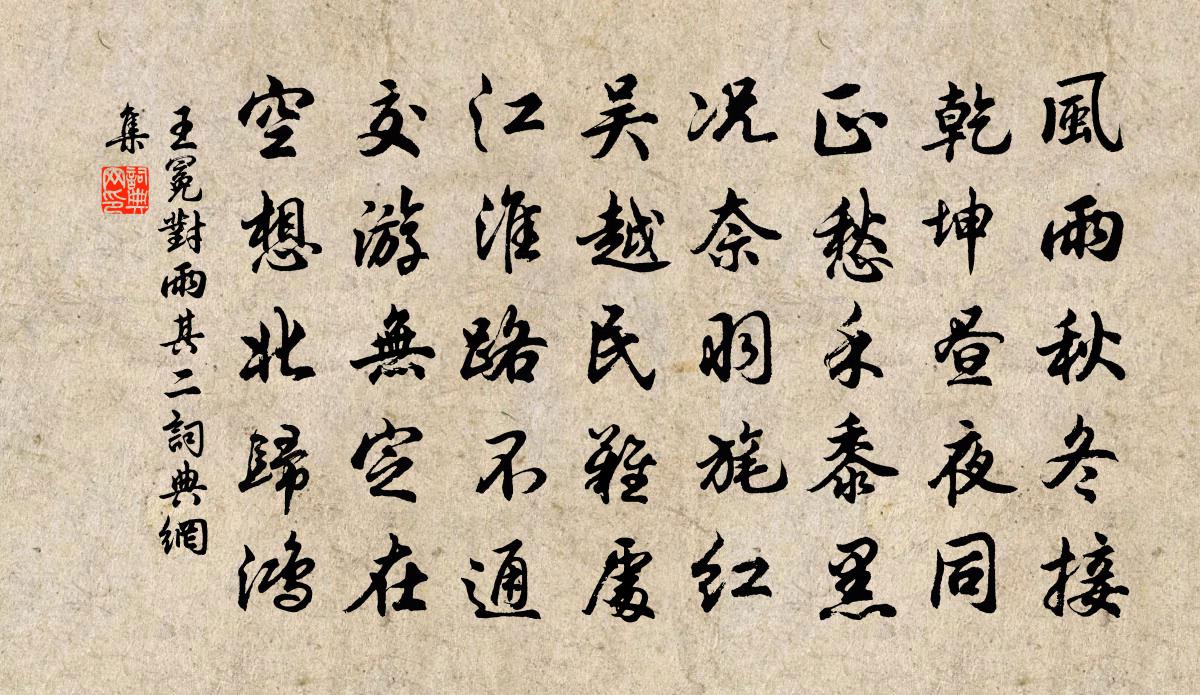 風雨秋冬接
乾坤昼夜同
正愁禾黍黑
况奈羽旄红
吴越民難處
江淮路不通
交游無定在
空想北歸鴻
王冕對雨其二詞典網
集
詞典
网印